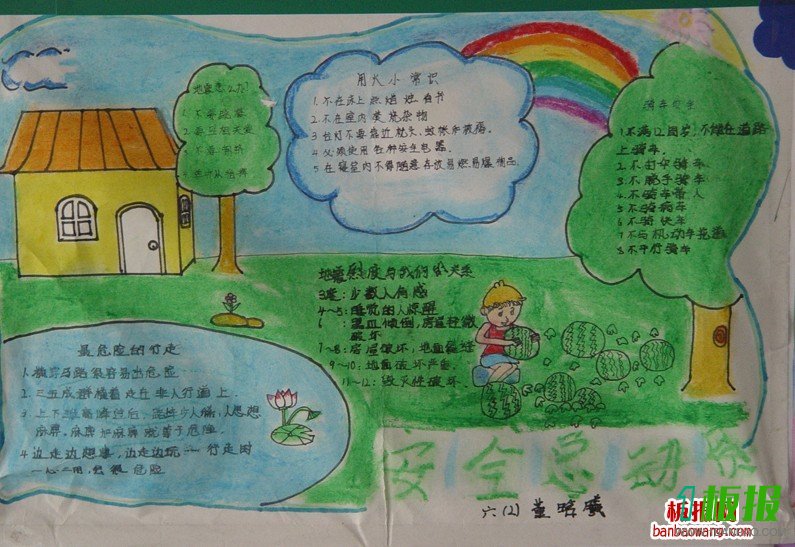 地震怎么办?
4.
用火小常识
1.不在床上点蜡烛看书
2.不在室内焚烧杂物
3.台灯不要靠近枕头、蚊帐和被褥。
4.
5.在寝室内不得随意存放易燃、易爆物品
骑车安全
1.不满12周岁,不能在道路
上骑车.
2.不打伞骑车
3.不脱手骑车
4.不骑车带人
5.不骑病车
6.不骑快车
7.不与机动车抢道
8.不平行骑车
地震烈度与我们的关系
3度:少数人有感
4~5:睡觉的人惊醒
6 : 器皿倾倒,房屋轻微
破坏
7~8:房屋破坏,地面裂缝
9~10:地面破坏严重.
11~12:毁灭性破坏.
最危险的行走
1.横穿马路很容易出危险
2.三五成群横着走在非人行道上.
3.上下班高峰过后
4.边走边想事,边走边玩……行走时
一心二用,危险
安全总动员
六(2)董
板报网
banbaowang.com
板报